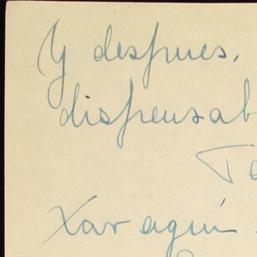 Y despues,
dispensab
Te
Xavaquí